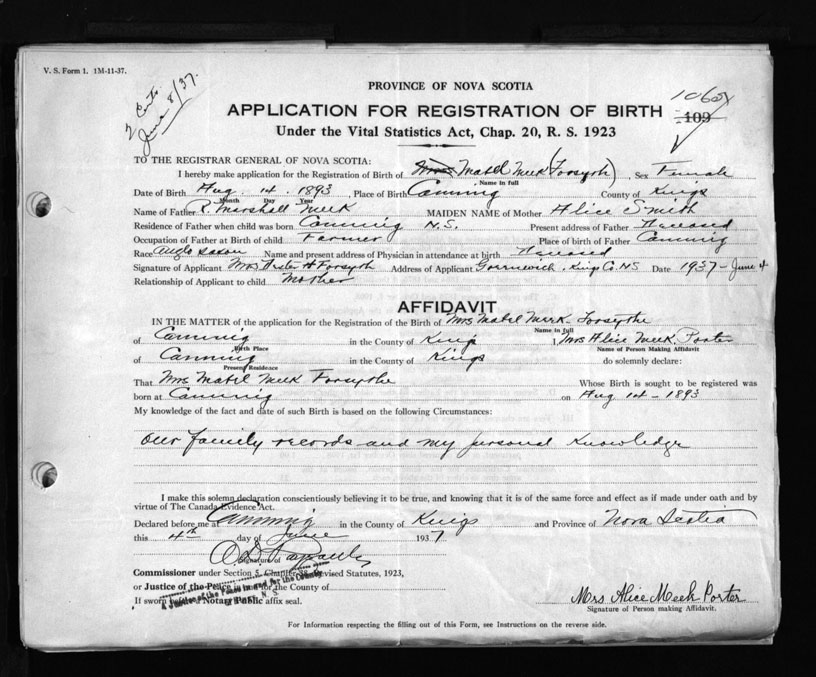 V. S. Form 1. 1M-11-37.
2 Certs
June 8/37.
PROVINCE OF NOVA SCOTIA
APPLICATION FOR REGISTRATION OF BIRTH
109
Under the Vital Statistics Act, Chap. 20, R. S. 1923
TO THE REGISTRAR GENERAL OF NOVA SCOTIA:
I hereby make application for the Registration of Birth of Mrs Mabel Meek (Forsyth) Sex Female
Name in full
Date of Birth Aug. 14. 1893 Place of Birth Canning County of Kings
Month Day Year
Name of Father R. Marshall Meek MAIDEN NAME of Mother Alice Smith
Residence of Father when child was born Canning N.S. Present address of Father Deceased
Occupation of Father at Birth of child Farmer Place of birth of Father Canning
Race Anglo Saxon Name and present address of Physician in attendance at birth Deceased
Signature of Applicant Mrs H Forsyth Address of Applicant Greenwich, Kings Co. NS Date 1937-June 4
Relationship of Applicant to child Mother
AFFIDAVIT
IN THE MATTER of the application for the Registration of the Birth of Mrs Mabel Meek Forsythe
Name in full
of Canning in the County of Kings I, Mrs Alice Meek Porter
Birth Place Name of Person Making Affidavit
of Canning in the County of Kings do solemnly declare:
Present Residence
That Mrs Mabel Meek Forsythe Whose Birth is sought to be registered was
born at Canning on Aug 14-1893
My knowledge of the fact and date of such Birth is based on the following Circumstances:
Our family records and my personal Knowledge
I make this solemn declaration conscientiously believing it to be true, and knowing that it is of the same force and effect as if made under oath and by
virtue of The Canada Evidence Act.
Declared before me at Canning in the County of Kings and Province of Nova Scotia
this 4th day of June 1937
Signature of
Commissioner under Section 5, Chapter 38, Revised Statutes, 1923,
or Justice of the Peace in and for the County of
A Justice of the Peace in and for the County
If sworn before Notary Public affix seal.
Mrs Alice Meek Porter
Signature of Person making Affidavit.
For Information respecting the filling out of this Form, see Instructions on the reverse side.